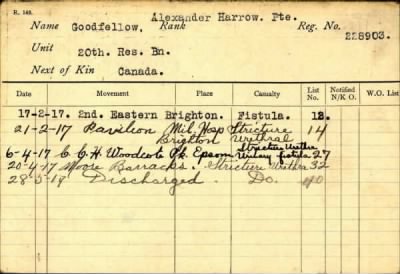 R. 149.
Alexander Harrow. Pte.
Name Goodfellow, Rank Reg. No.
228903.
Unit 20th. Res. Bn.
Next of Kin Canada.
Date Movement Place Casualty List No. Notified N/K O. W.O. List
17-2-17. 2nd. Eastern Brighton. Fistula. 12.
21-2-17 Pavilion Mil. Hosp Stricture 14
Brighton Urethral
Stricture Urethra
6-4-17 C. C. H. Woodcote Pk. Epsom Urinary fistula 27
20-4-17 Moore Barracks. Stricture Urethra 32
28-5-17 Discharged. Do. 40